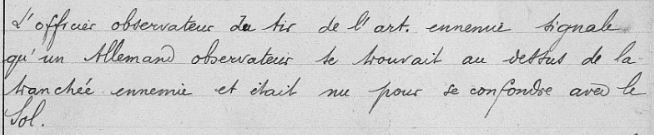 L'officier observateur du tir de l'art. ennemie signale
qu'un Allemand observateur se trouvait au dessus de la
tranchée ennemie et était nu pour se confondre avec le
Sol.